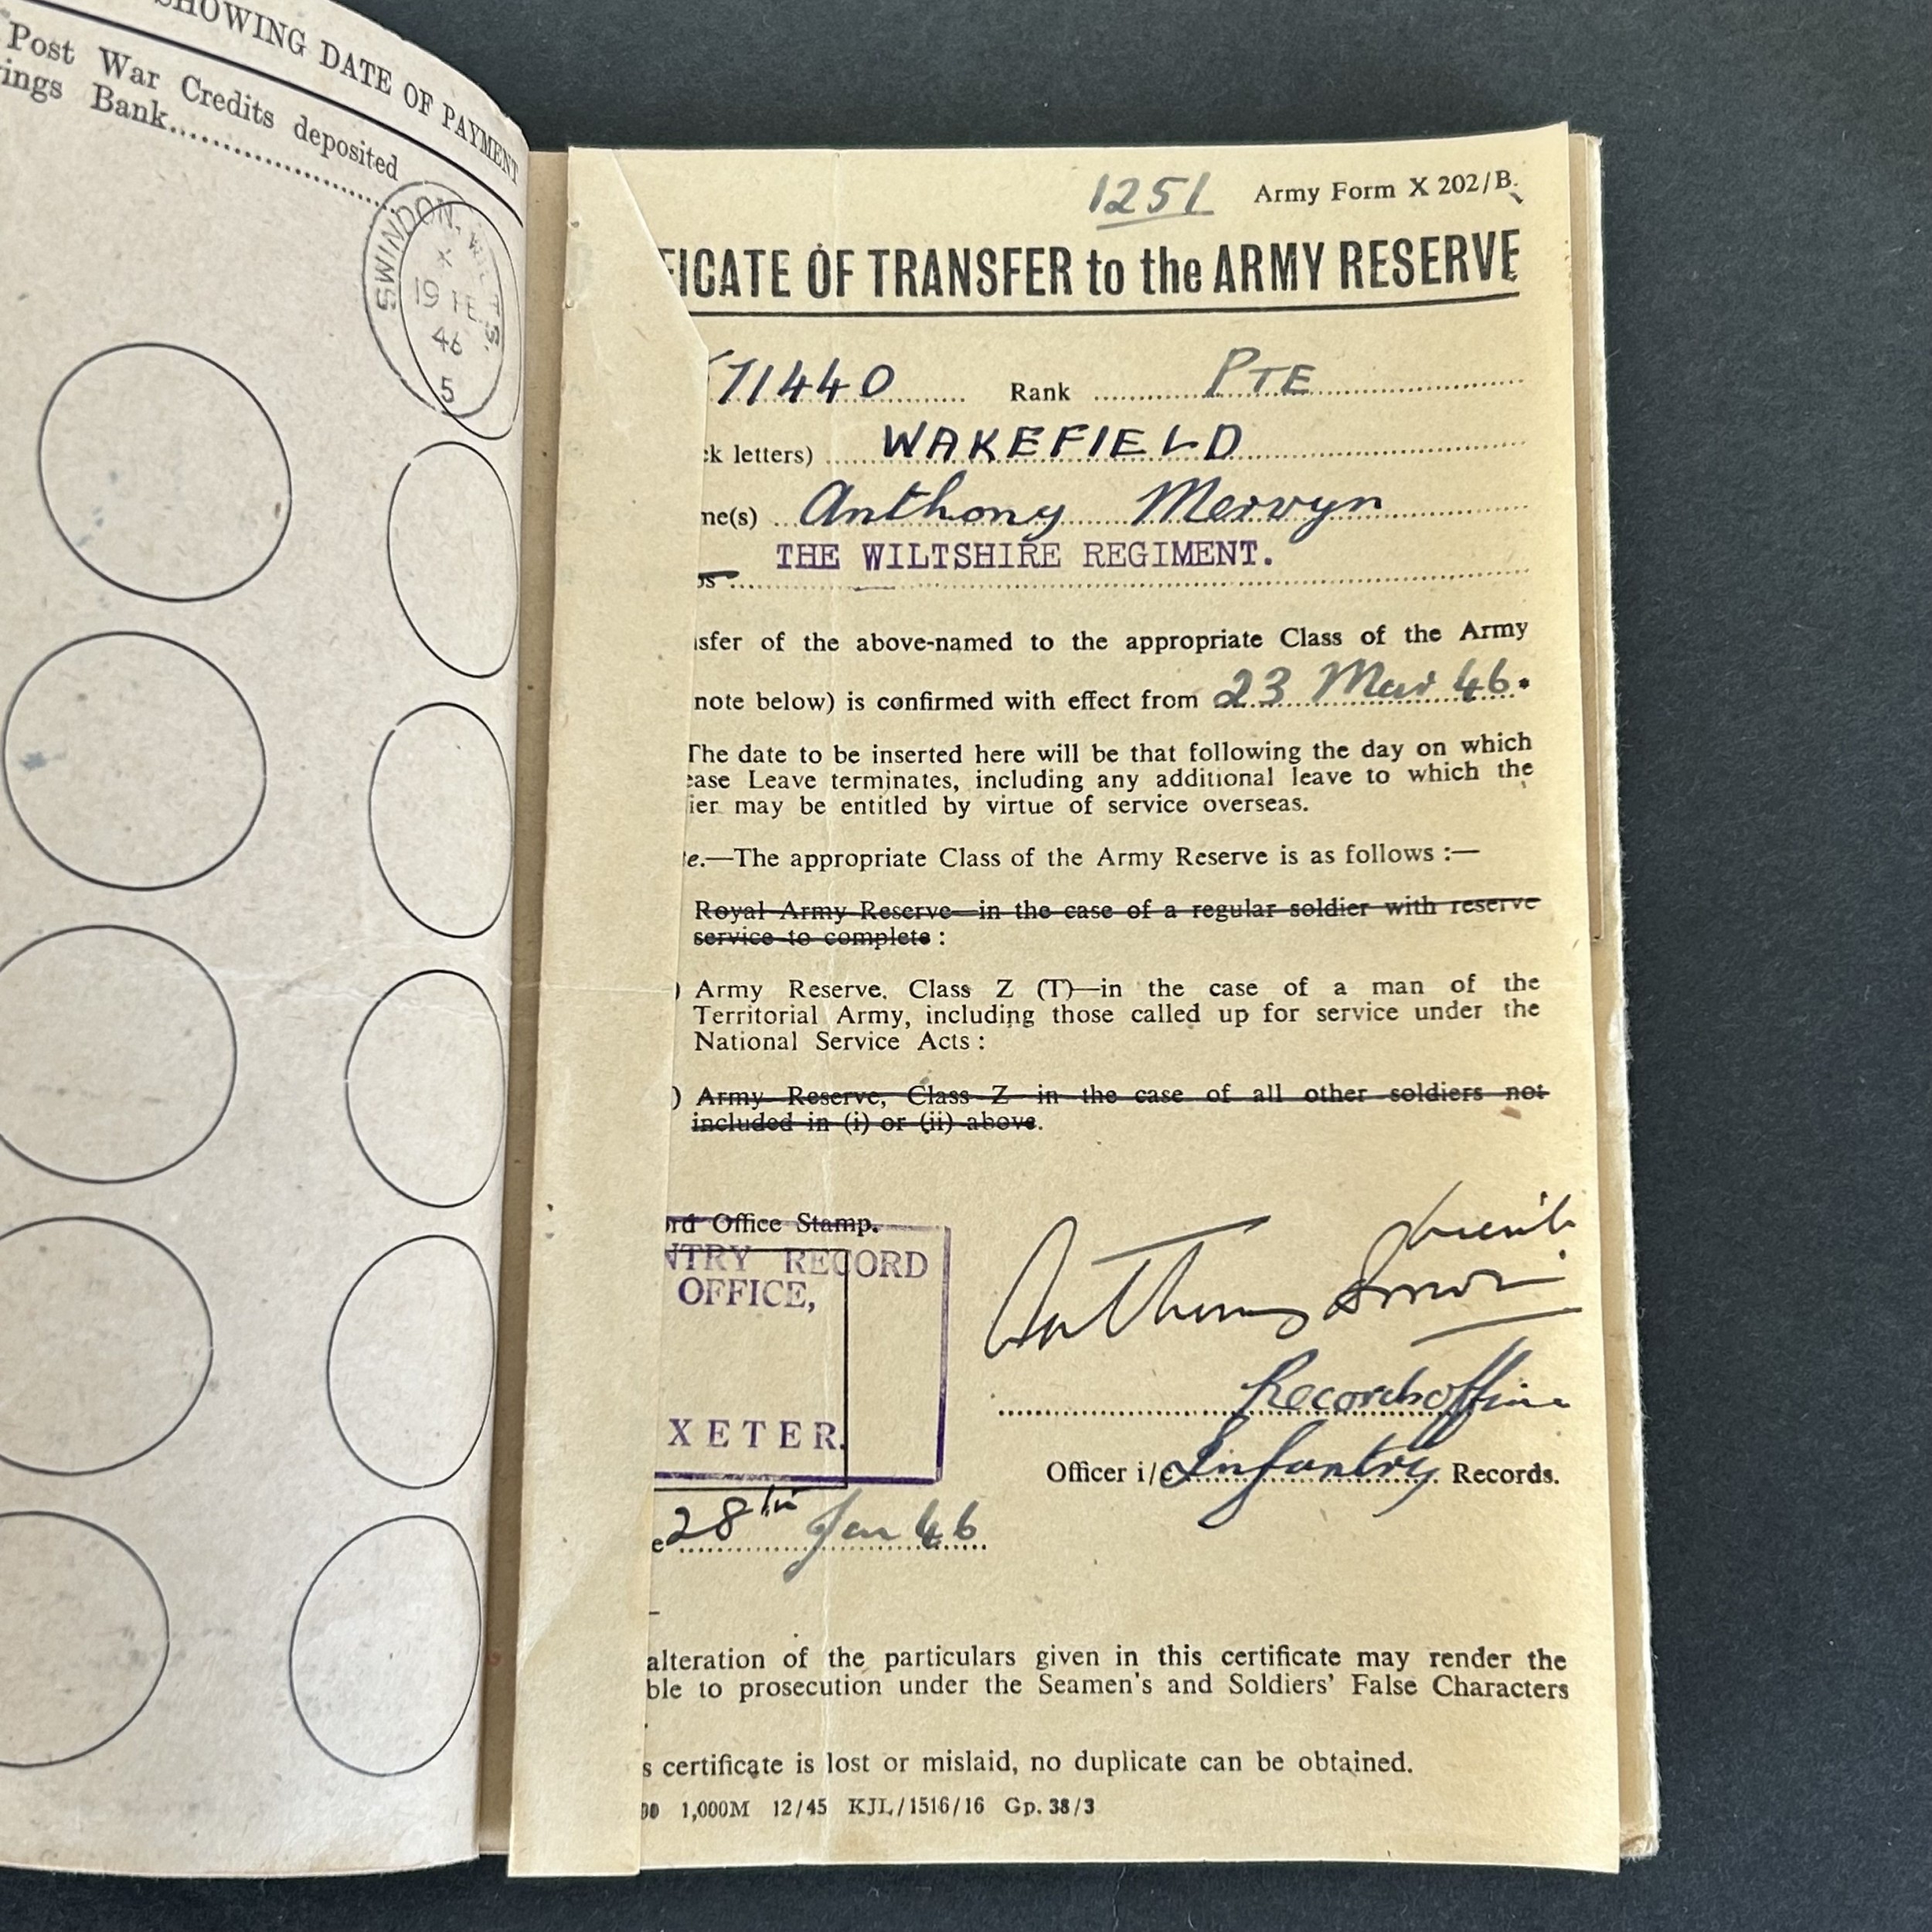 SHOWING DATE OF PAYMENT
Post War Credits deposited
ings Bank
SWINDON, WILTS.
X
19 FE
46
5
1251 Army Form X 202/B.
FICATE OF TRANSFER to the ARMY RESERVE
71440 Rank PTE
ck letters) WAKEFIELD
me(s) Anthony Mervyn
THE WILTSHIRE REGIMENT.
ps
nsfer of the above-named to the appropriate Class of the Army
note below) is confirmed with effect from 23 Mar 46.
The date to be inserted here will be that following the day on which
ease Leave terminates, including any additional leave to which the
ier may be entitled by virtue of service overseas.
te.—The appropriate Class of the Army Reserve is as follows :—
Royal Army Reserve—in the case of a regular soldier with reserve
service to complete :
) Army Reserve, Class Z (T)—in the case of a man of the
Territorial Army, including those called up for service under the
National Service Acts :
) Army Reserve, Class Z in the case of all other soldiers not
included in (i) or (ii) above.
ord Office Stamp.
NTRY RECORD
OFFICE,
XETER.
Anthony
Records office
Officer i/c Infantry Records.
e 28th Jan 46
alteration of the particulars given in this certificate may render the
ble to prosecution under the Seamen's and Soldiers' False Characters
s certificate is lost or mislaid, no duplicate can be obtained.
00 1,000M 12/45 KJL/1516/16 Gp. 38/3